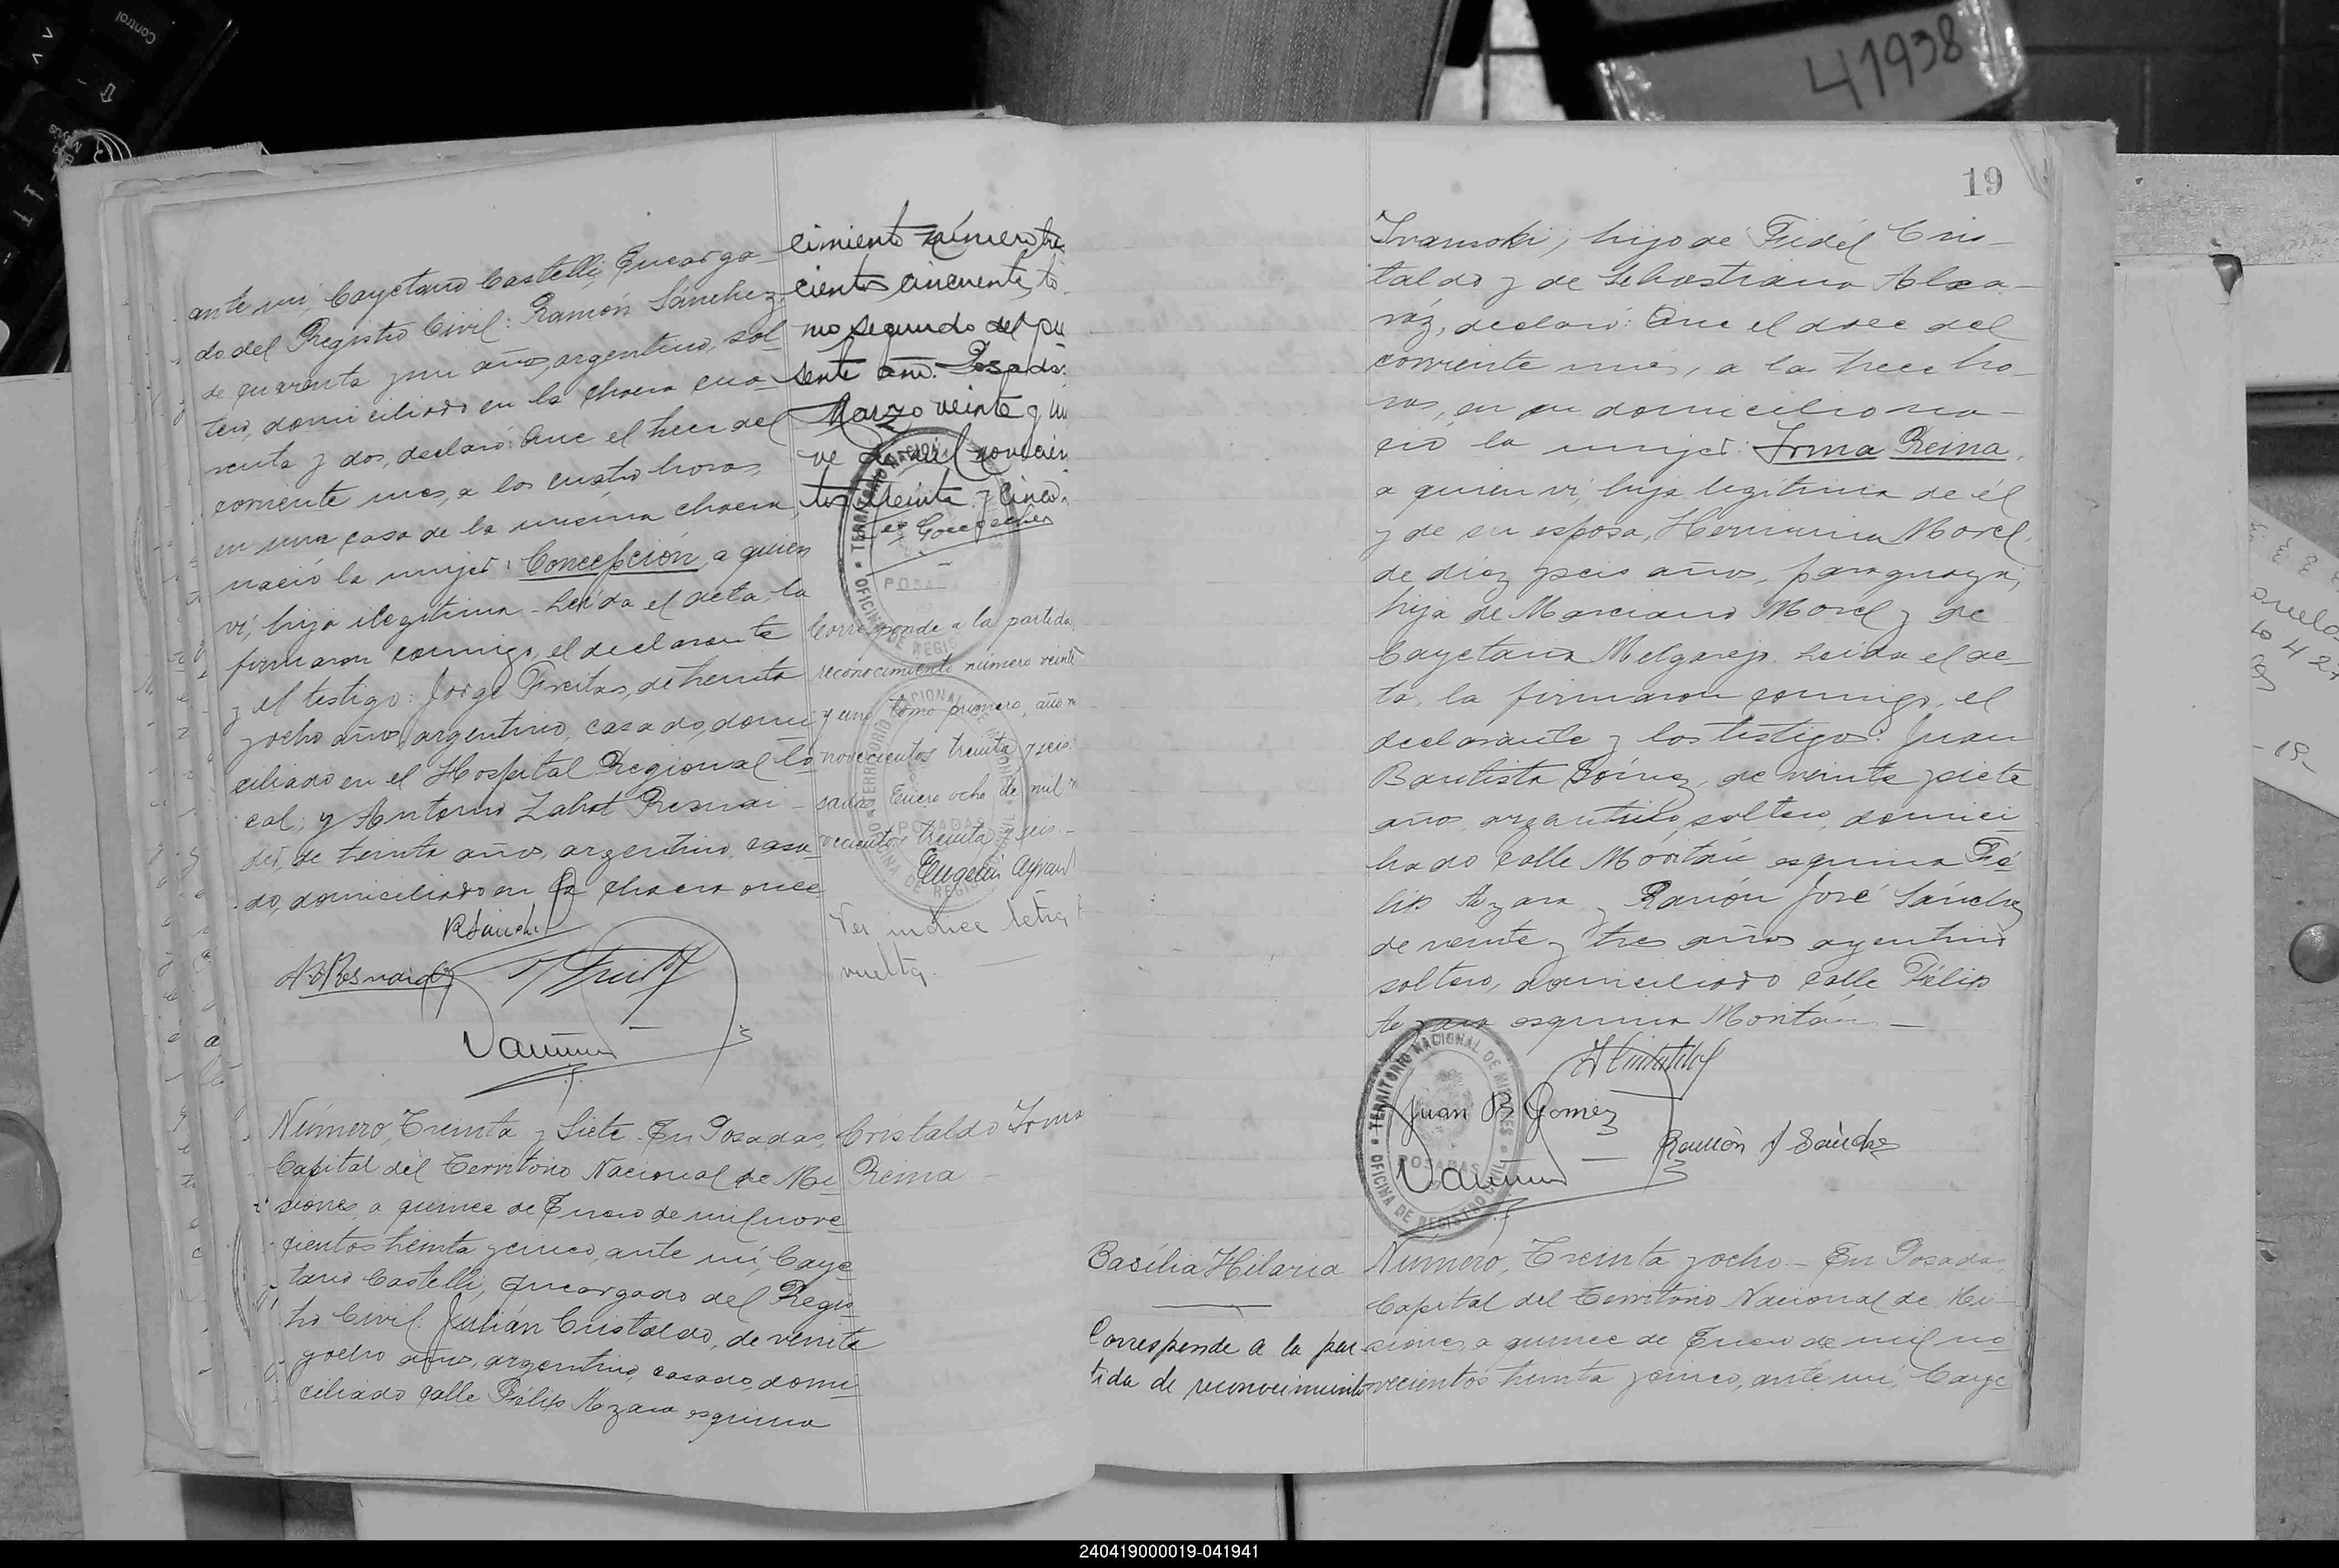 Control
41938
ante mí, Cayetano Castelli, Encarga-
do del Registro Civil: Ramón Sánchez,
de cuarenta y un años, argentino, sol-
tero, domiciliado en la chacra cua-
renta y dos, declaró: Que el trece del
corriente mes, a las cuatro horas,
en una casa de la misma chacra,
nació la mujer: Concepción, a quien
ví, hija ilegítima. Leída el acta, la
firmaron conmigo, el declarante
y el testigo: Jorge Freitas, de treinta
y ocho años, argentino, casado, domi-
ciliado en el Hospital Regional lo-
cal; y Antonio Zabot Resnai-
der, de treinta años, argentino, casa-
do, domiciliado en la chacra once
cimiento número tre
cientos cincuenta, to-
mo segundo del pre
sente año. Posadas
Marzo veinte y nue
ve de mil novecien
tos treinta y cinco.
TERRITORIO NACIONAL
POSADAS
OFICINA DE REGISTRO
Corresponde a la partida
reconocimiento número veinte
y uno tomo primero, año m
novecientos treinta y seis.
sadas, Enero ocho de mil n
vecientos treinta y seis.-
Ver indice letra
vuelta.
R Sánchez
Número, Treinta y Siete. En Posadas,
Capital del Territorio Nacional de Mi-
siones, a quince de Enero de mil nove
cientos treinta y cinco, ante mí, Caye
tano Castelli, Encargado del Regis
tro Civil: Julián Cristaldo, de veinte
y ocho años, argentino, casado, domi
ciliado calle Félix Azara esquina
Cristaldo Irma
Reina -
19
hijo de Fidél Cris-
taldo y de Sebastiana Alca-
ráz, declaró: Que el doce del
corriente mes, a las trece ho-
ras, en su domicilio na-
ció la mujer: Irma Reina,
a quien ví, hija legítima de él
y de su esposa, Herminia Morel,
de diez y seis años, paraguaya,
hija de Marciano Morel y de
Cayetana Melgarejo. Leída el ac-
ta, la firmaron conmigo, el
declarante y los testigos: Juan
Bautista Gómez, de veinte y siete
años, argentino, soltero, domici
liado calle esquina Fé
lix Azara y Ramón José Sánchez
de veinte y tres años argentino
soltero, domiciliado calle Félix
Azara esquina
TERRITORIO NACIONAL DE MISIONES
POSADAS
OFICINA DE REGISTRO CIVIL
Juan B Gomez
Ramón J Sánchez
Basilia Hilaria
Corresponde a la par
tida de reconocimiento
Número, Treinta y ocho.- En Posadas
Capital del Territorio Nacional de Mi-
siones, a quince de Enero de mil no
vecientos treinta y cinco, ante mí, Caye
240419000019-041941